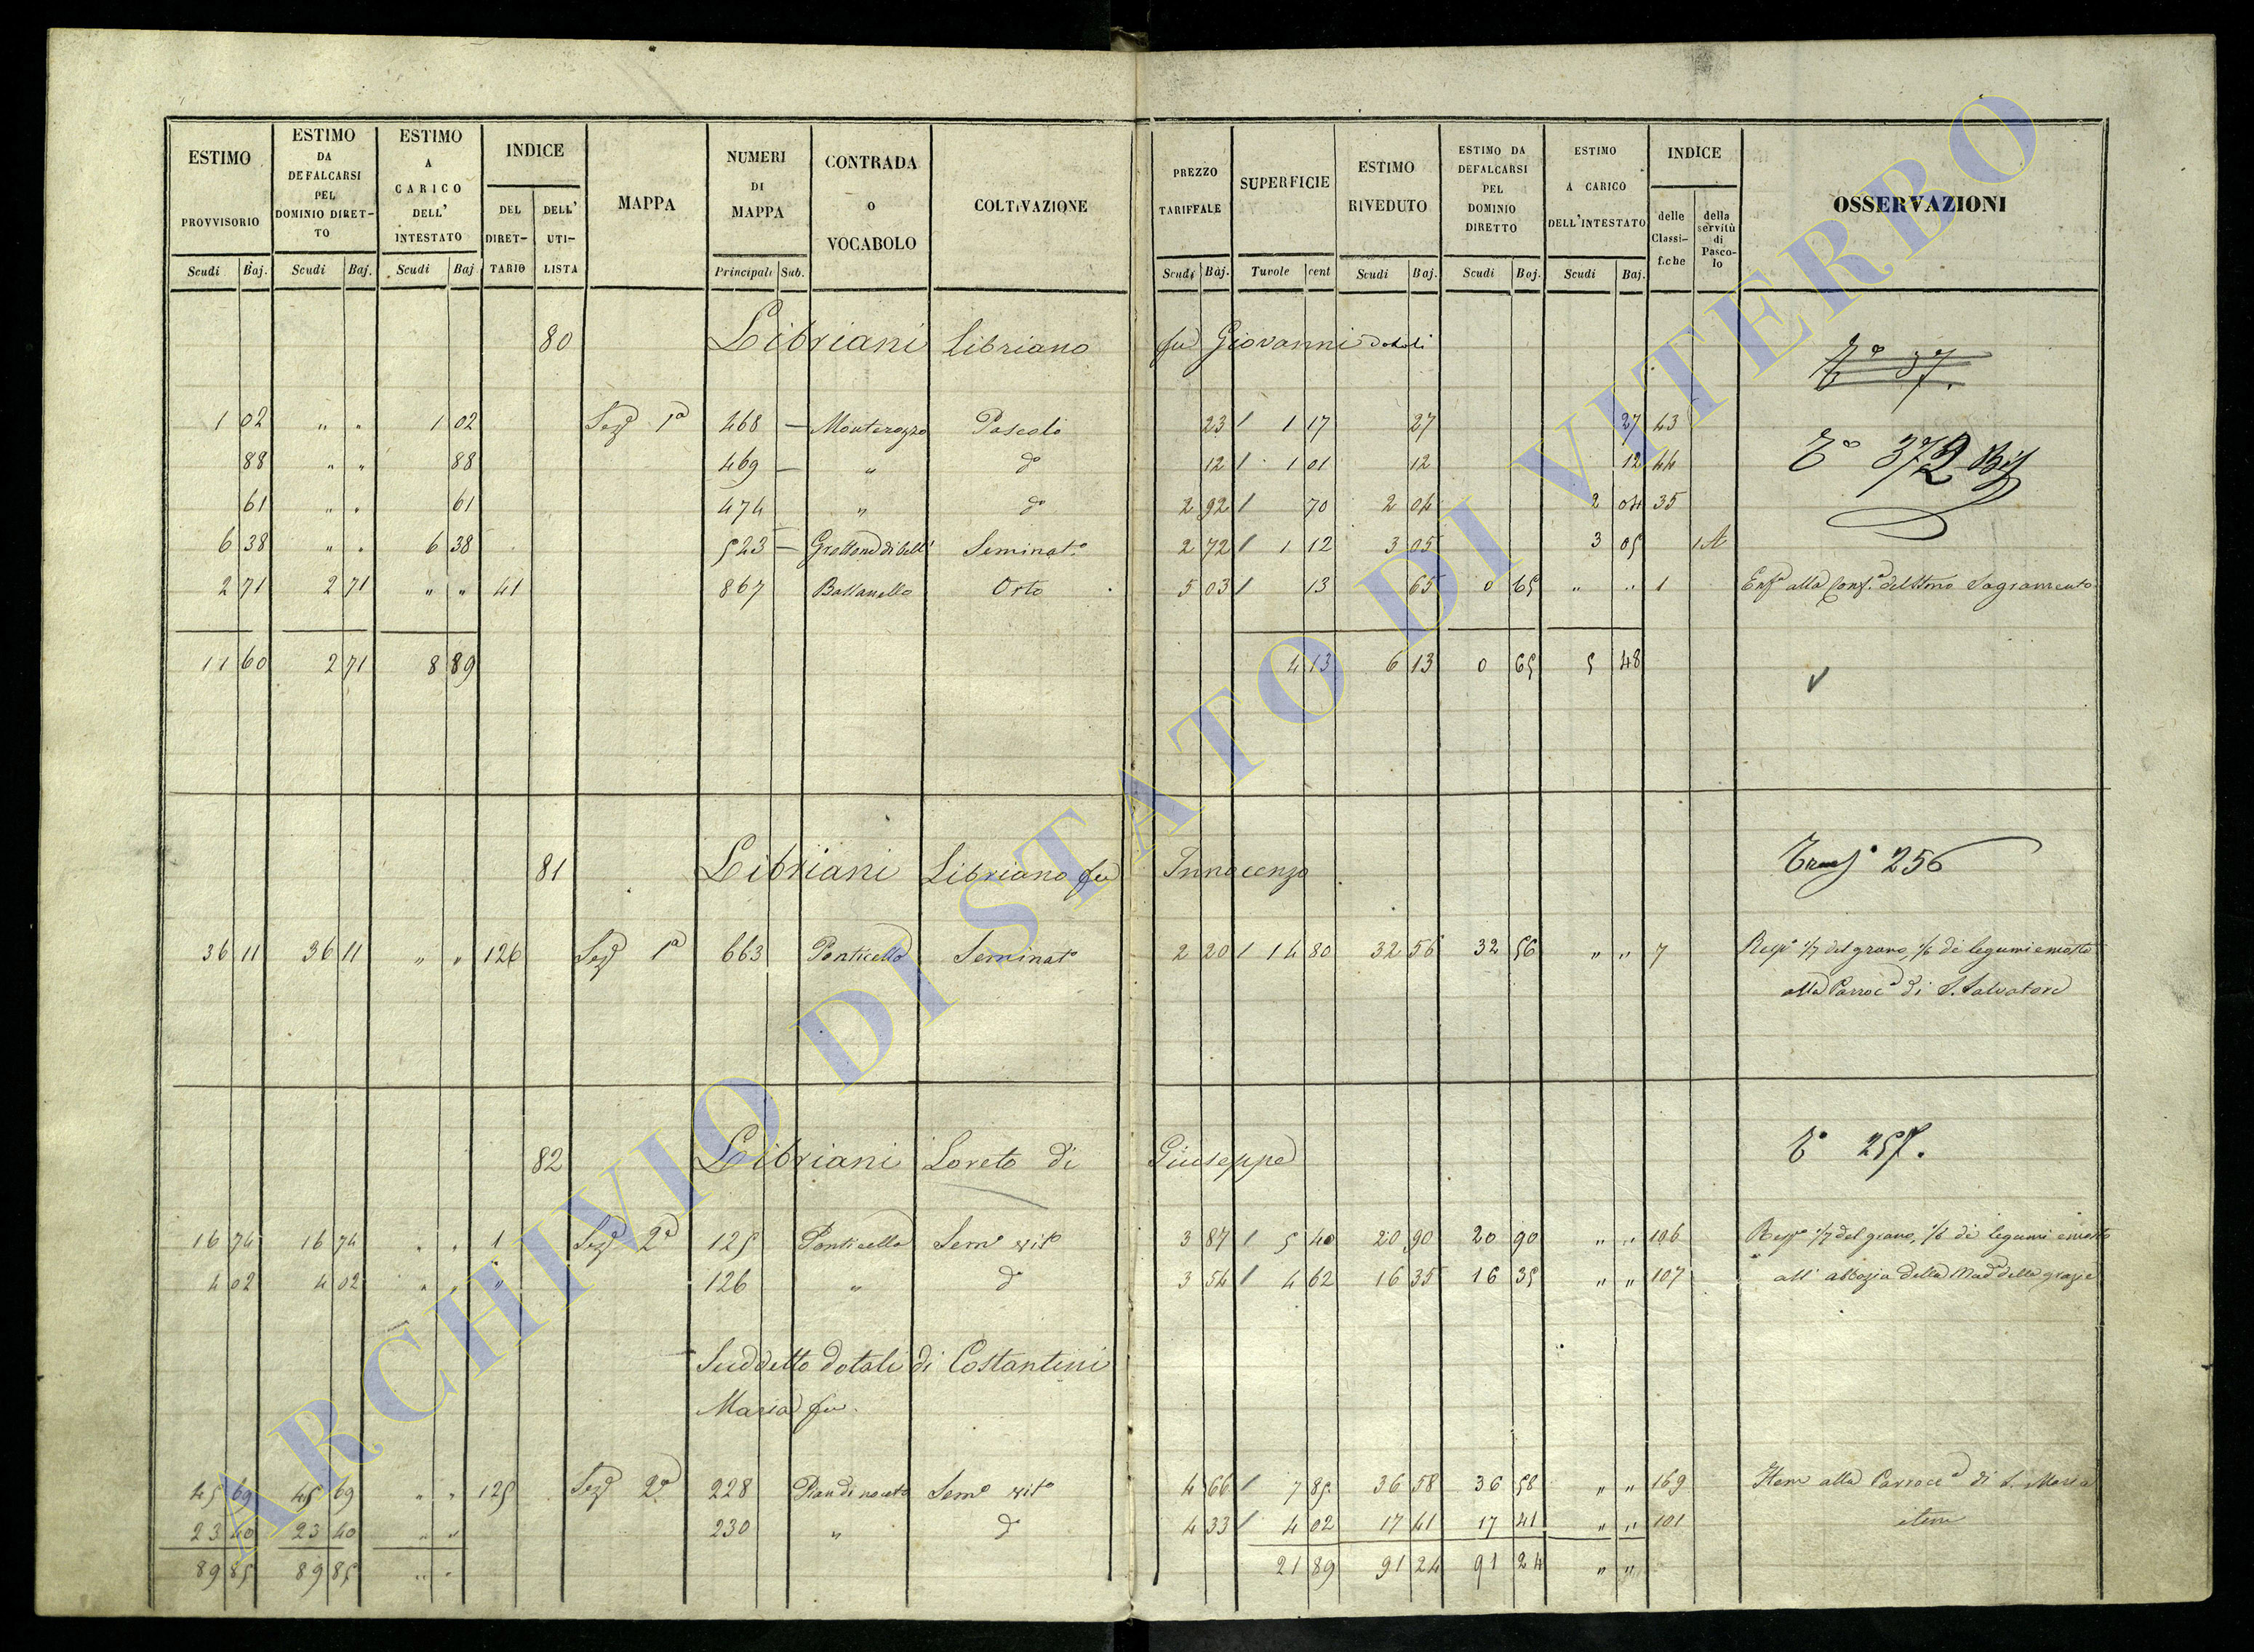 ESTIMO PROVVISORIO Scudi Baj.
ESTIMO DA DEFALCARSI PEL DOMINIO DIRET-TO Scudi Baj.
ESTIMO A CARICO DELL' INTESTATO Scudi Baj
INDICE DEL DIRET-TARIO DELL' UTI-LISTA
MAPPA
NUMERI DI MAPPA Principali Sub.
CONTRADA O VOCABOLO
COLTIVAZIONE
PREZZO TARIFFALE Scudi Baj.
SUPERFICIE Tavole cent
ESTIMO RIVEDUTO Scudi Baj.
ESTIMO DA DEFALCARSI PEL DOMINIO DIRETTO Scudi Baj.
ESTIMO A CARICO DELL'INTESTATO Scudi Baj.
INDICE delle Classi-fiche della servitù di Pasco-lo
OSSERVAZIONI
80 Libriani Libriano fu Giovanni dotali
Tº 37.
1 02 " " 1 02 Sezº 1ª 468 — Monterozzo Pascolo 23 1 1 17 27 27 43
88 " " 88 469 — " dº 12 1 1 01 12 12 44
Tº 372 Bis
61 " " 61 474 " dº 2 92 1 70 2 04 2 04 35
6 38 " " 6 38 523 — Seminatº 2 72 1 1 12 3 05 3 05
2 71 2 71 " " 41 867 Bassanello Orto 5 03 1 13 65 0 65 " " 1 Enfª alla Conf.ª del Ssmo Sagramento
11 60 2 71 8 89 4 13 6 13 0 65 5 48
81 Libriani Libriano fu Innocenzo
Trasº 256
36 11 36 11 " " 126 Sezº 1ª 663 Ponticello Seminatº 2 20 1 14 80 32 56 32 56 " " 7 Rispª 1/7 del grano, 1/6 di legumi e mosto
alla Parrocª di S. Salvatore
82 Libriani Loreto di Giuseppe
Tº 257.
16 74 16 74 " " 1 Sezº 2ª 125 Ponticello Semº vitº 3 87 1 5 40 20 90 20 90 " " 106 Rispª 1/7 del grano, 1/6 di legumi e mosto
4 02 4 02 " " " 126 " dº 3 54 1 4 62 16 35 16 35 " " 107 all' abbazia della Madª delle grazie
Suddetto dotali di Costantini
Maria fu
45 69 45 69 " " 125 Sezº 2ª 228 Pian di noceto Semº vitº 4 66 1 7 85 36 58 36 58 " " 169 Item alla Parroccª di S. Maria
23 40 23 40 " " 230 " dº 4 33 1 4 02 17 41 17 41 " " 101 item
89 85 89 85 " " 21 89 91 24 91 24 " "
ARCHIVIO DI STATO DI VITERBO